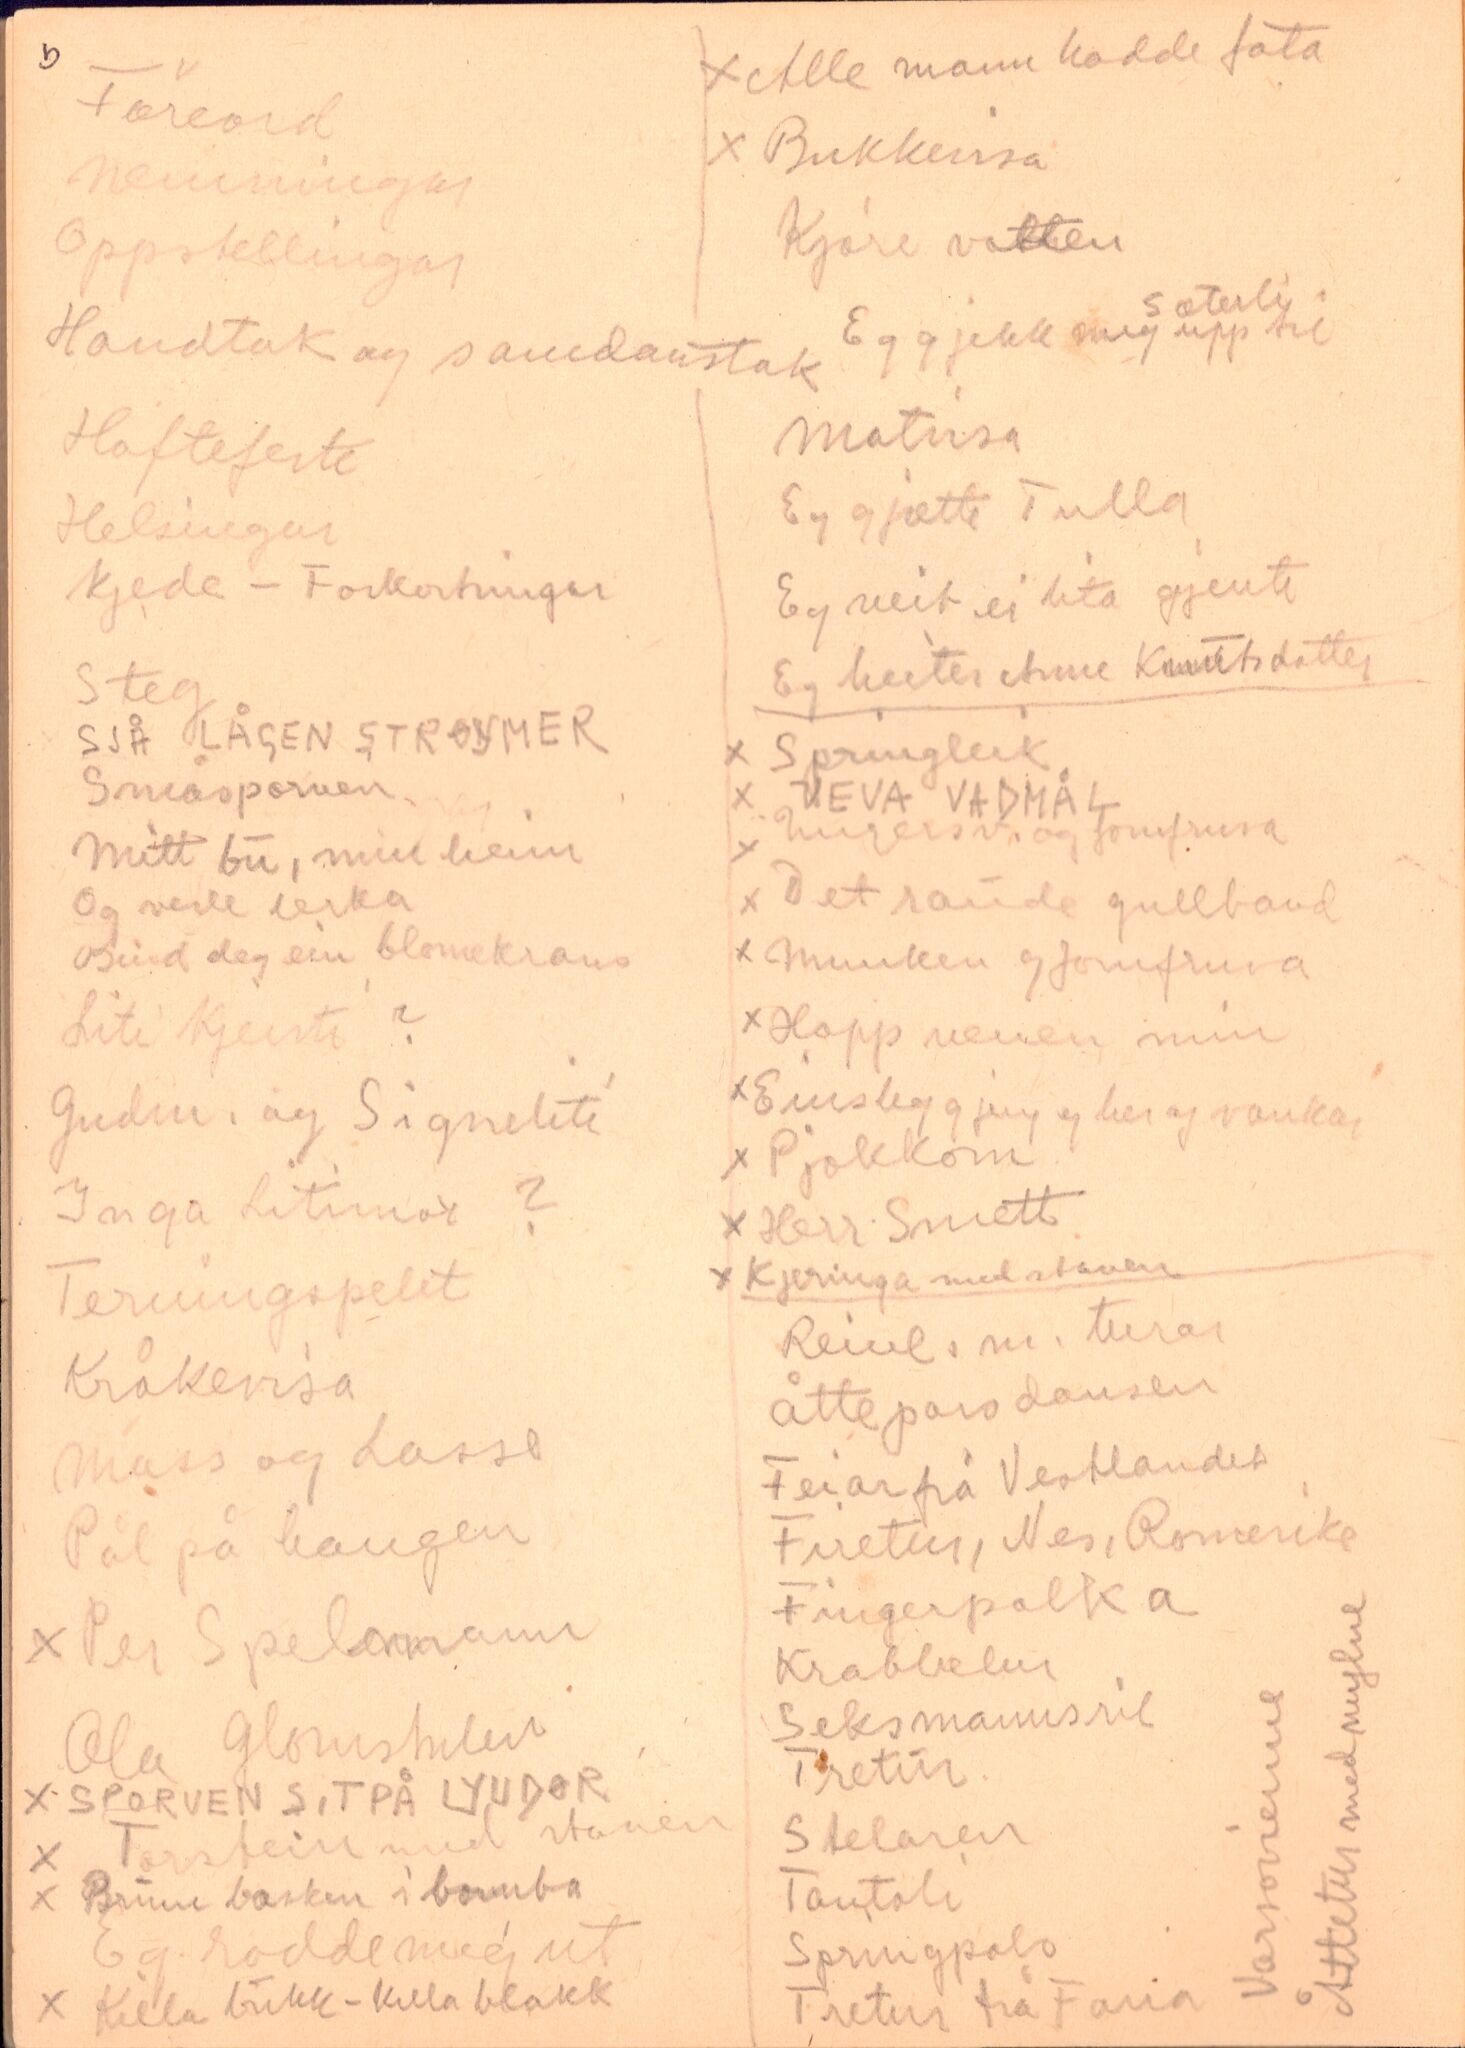 Føreord
Nemningar
Oppstellingar
Handtak og samdanstak
Hoftefeste
Helsingar
Kjede - Forkortningar
Steg
SJÅ LÅGEN STRØYMER
Småsporven
Mitt bu, min heim
Og vesle lerka
Bind deg ein blomekrans
Liti Kjersti ?
Gudm. og Signeliti
Inga Litimor ?
Terningspelet
Kråkevisa
Mass og Lasse
Pål på haugen
x Per Spelmann
Ola Glomstulen
x SPORVEN SIT PÅ LYNDOR
x Torstein med staven
x Brune basken i bomba
Eg rodde meg ut
x Killa bukk - Killa blakk
x Alle mann hadde fota
x Bukkevisa
Kjøre vatten
Eg gjekk meg upp til
Sæterli
Matvisa
Eg gjætte Tulla
Eg veit ei lita gjente
Eg heiter Anne Knutsdotter
x Springleik
x VEVA VADMÅL
x og Jomfruva
x Det raude gullband
x Munken og Jomfruva
x Hopp venen min
x Einsleg gjeng eg her og vankar
x Pjokkom
x Herr Smett
x Kjeringa med staven
Reinl. m. turar
Åtteparsdansen
Feiar frå Vestlandet
Firetur, Nes, Romerike
Fingerpolka
Krabbelur
Seksmannsril
Tretur
Stelaren
Tantoli
Springpols
Tretur frå Faria
Varsovienne
Åttetur med mylne